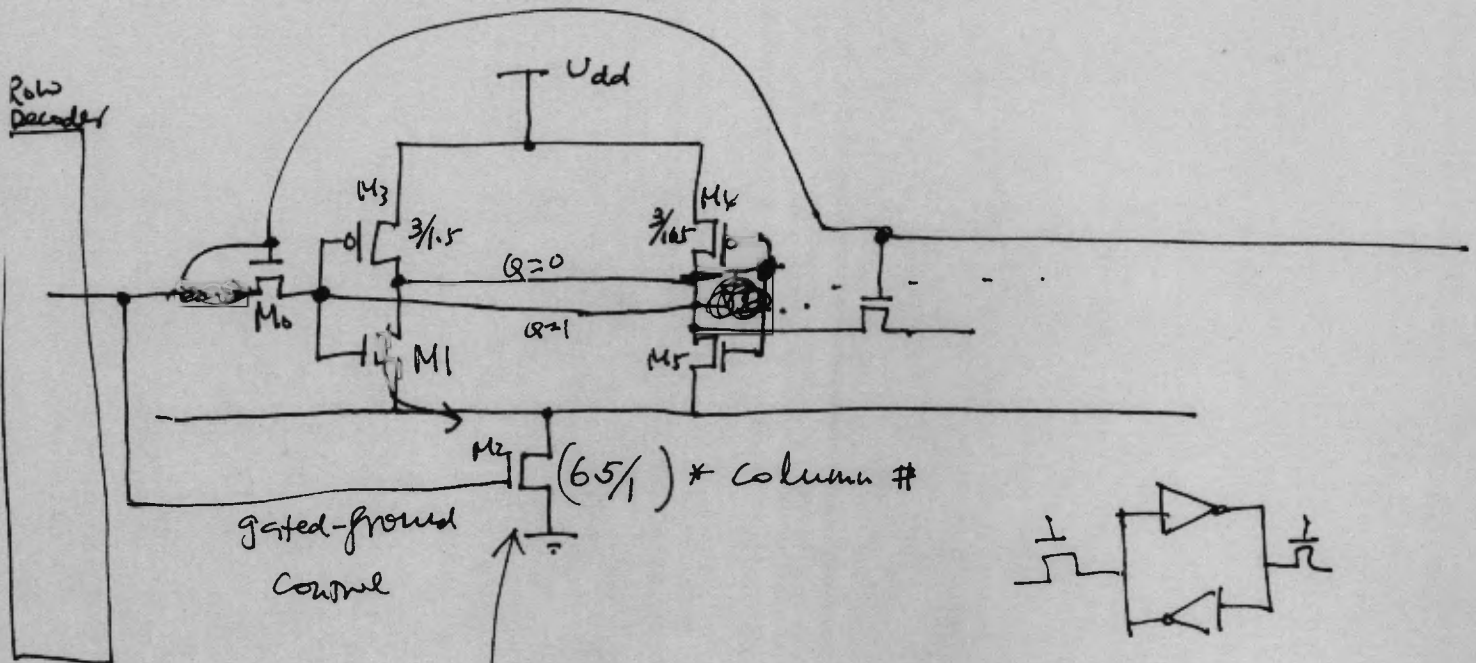 Row
Decoder
Udd
M3
3/1.5
M4
Q=0
M0
Q=1
M1
M5
M2
(6.5/1) * column #
gated-ground
control